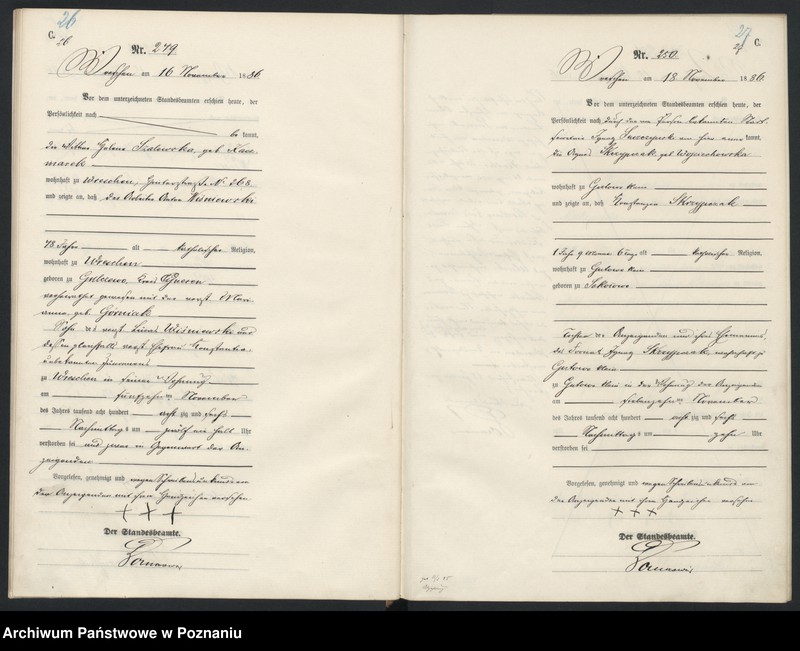 26
C.
26
Nr. 249
Wreschen am 16 November 1886
Vor dem unterzeichneten Standesbeamten erschien heute, der
Persönlichkeit nach
be kannt,
geb
wohnhaft zu Wreschen, № 268
und zeigte an, daß der Arbeiter Anton Wisniewski
48 Jahr alt katholischer Religion,
wohnhaft zu Wreschen
geboren zu
verheirathet gewesen mit der verst
geb. Gorniak
Sohn des verst Lucas Wisniewski und
verst Ehefrau Constantia
unbekannten
zu Wreschen in seiner Wohnung
am fünfzehnten November
des Jahres tausend acht hundert acht zig und sechs
Nachmittags um zwölf ein halb Uhr
verstorben sei und zwar in Gegenwart der An
zeigenden
Vorgelesen, genehmigt und wegen Schreibensunkunde von
der Anzeigenden mit ihren Handzeichen versehen
+ + +
Der Standesbeamte.
27
27 C.
Nr. 250
Wreschen am 18 November 1886
Vor dem unterzeichneten Standesbeamten erschien heute, der
Persönlichkeit nach durch den von Person bekannten
Ignaz kannt,
die Agnes Skrzypczak geb Wojciechowska
wohnhaft zu Gutowo klein
und zeigte an, daß Konstanzia Skrzypczak
1 Jahr 9 Monate 6 Tage alt katholischer Religion,
wohnhaft zu Gutowo klein
geboren zu Sokolowo
Tochter der Anzeigenden und ihres Ehemannes,
Ignaz Skrzypczak, wohnhaft zu
Gutowo klein
zu Gutowo klein in der Wohnung der Anzeigenden
am siebenzehnten November
des Jahres tausend acht hundert acht zig und sechs
Nachmittags um zehn Uhr
verstorben sei
Vorgelesen, genehmigt und wegen Schreibensunkunde von
der Anzeigenden mit ihren Handzeichen versehen
+ + +
Der Standesbeamte.
Archiwum Państwowe w Poznaniu